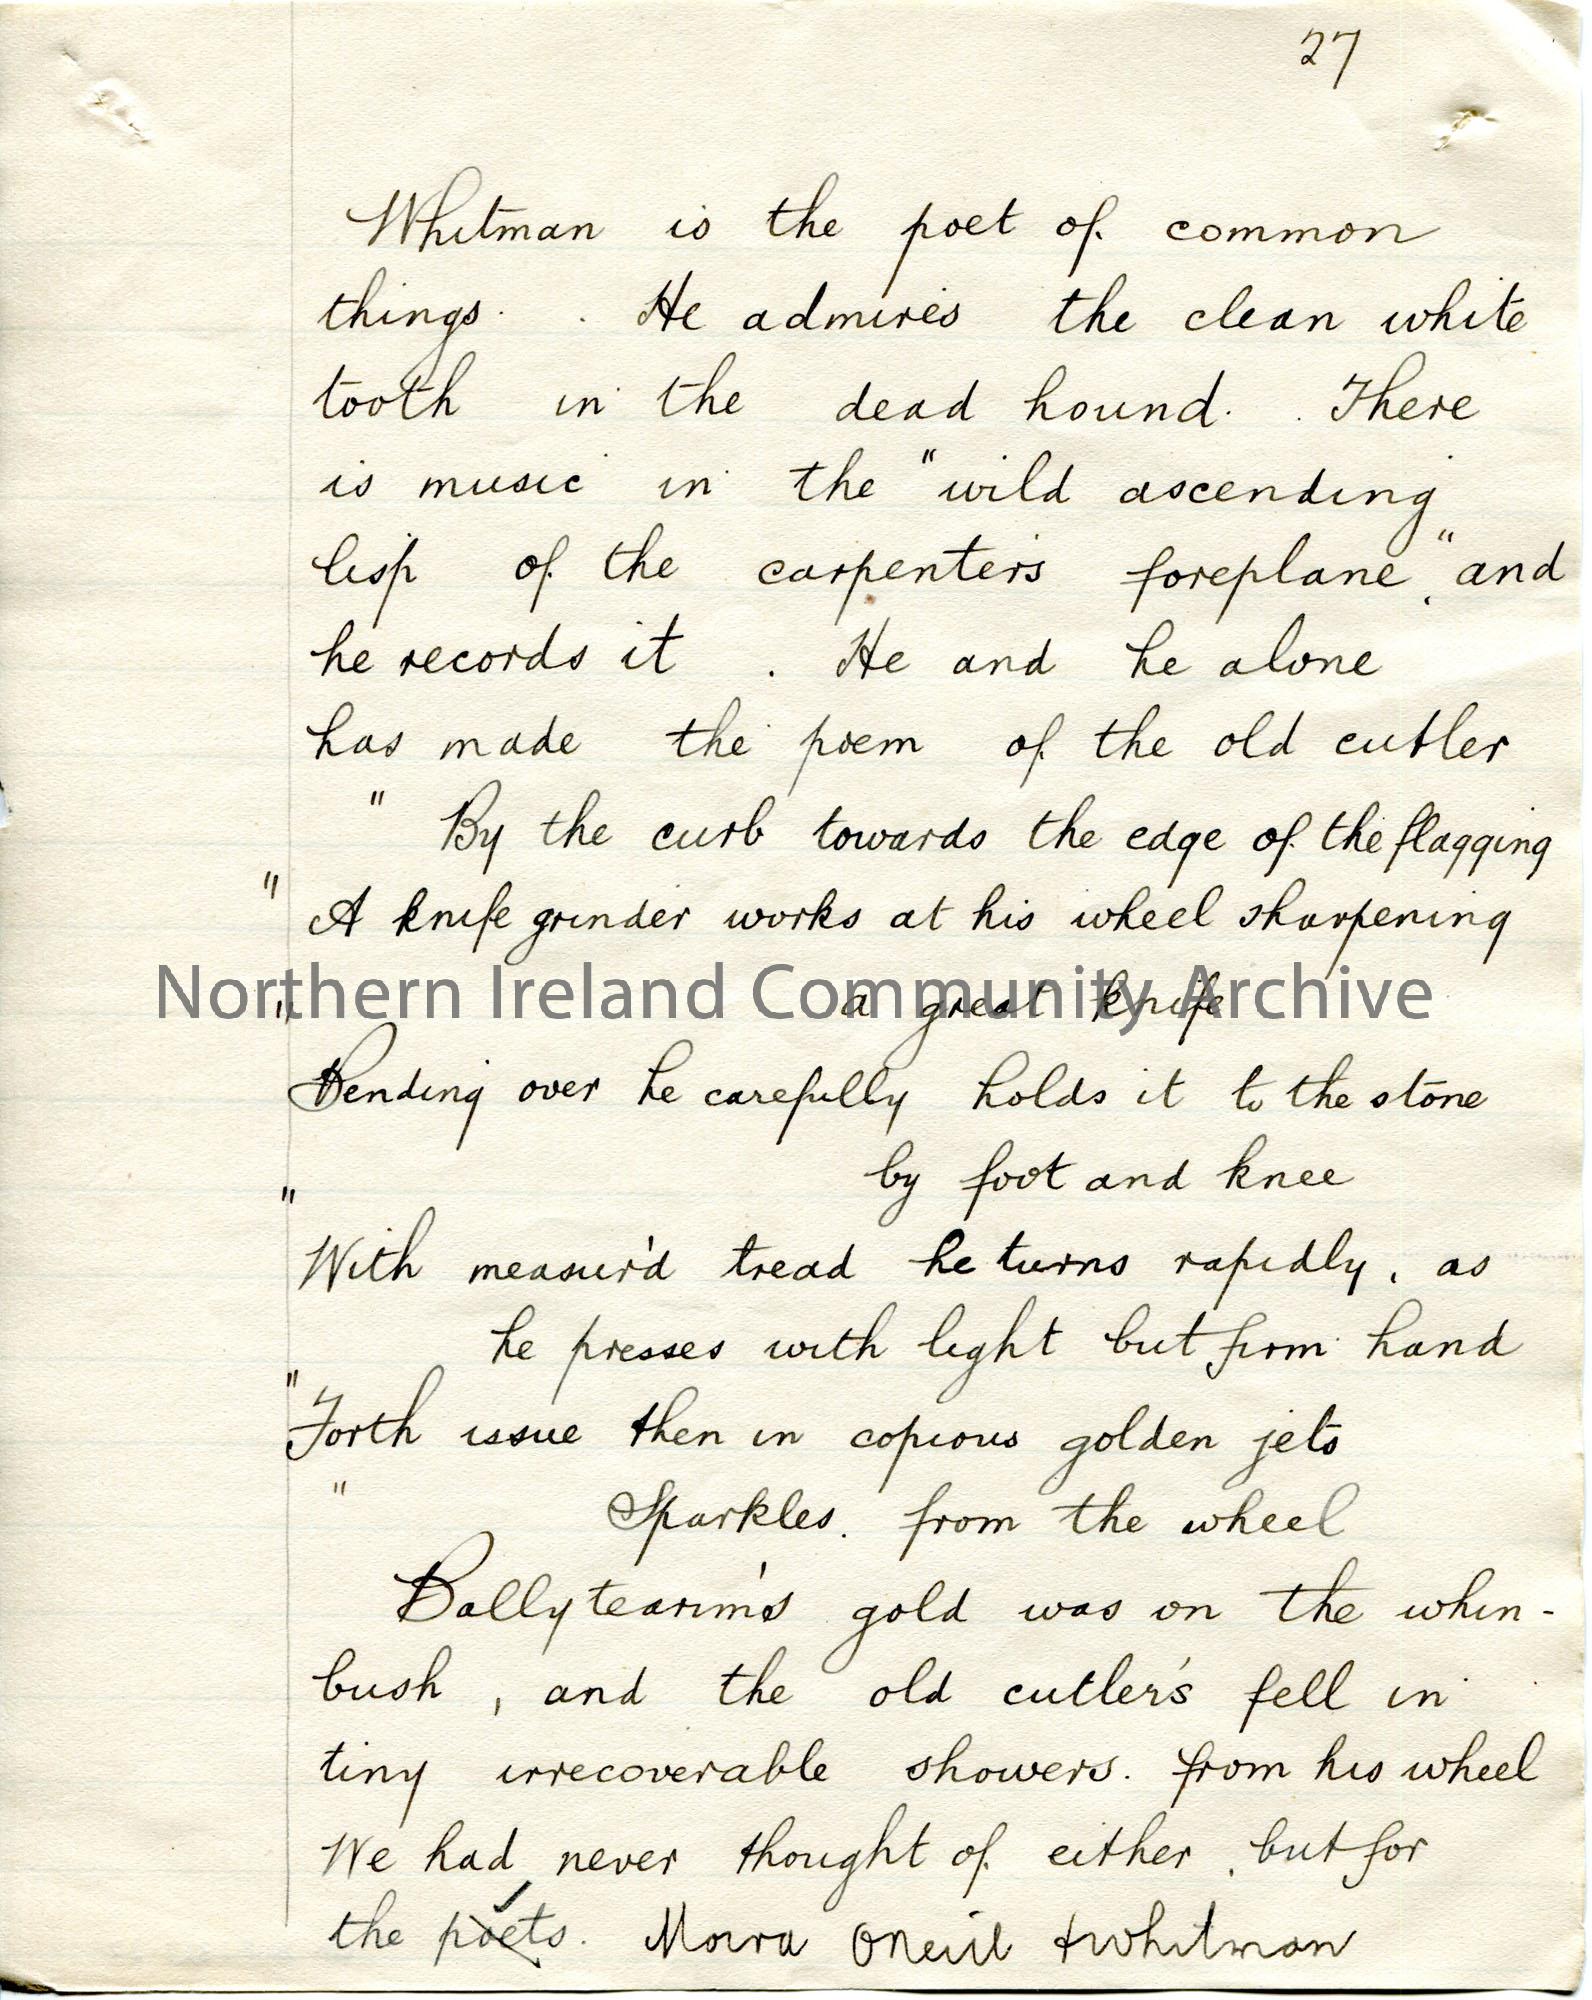 27
Whitman is the poet of common
things. . He admires the clean white
tooth in the dead hound. . There
is music in the "wild ascending
lisp of the carpenters foreplane", and
he records it . He and he alone
has made the poem of the old cutler
" By the curb towards the edge of the flagging
" A knife grinder works at his wheel sharpening
" a great knife
Northern Ireland Community Archive
Bending over he carefully holds it to the stone
by foot and knee
"
With measur'd tread he turns rapidly, as
he presses with light but firm hand
"
Forth issue then in copious golden jets
" Sparkles. from the wheel
Ballytearim's gold was on the whin-
bush, and the old cutler's fell in
tiny irrecoverable showers. from his wheel
We had never thought of either, but for
the poets. Moira ONeill & Whitman